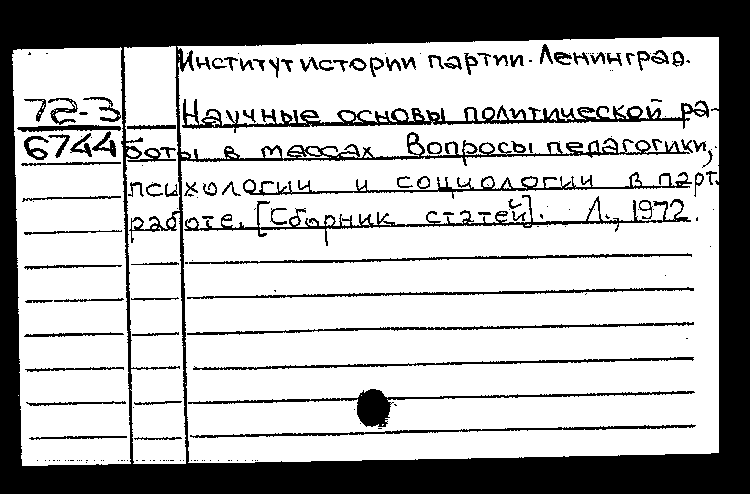 Институт истории партии. Ленинград.
72-3 Научные основы политической ра-
6744 боты в массах Вопросы педагогики,
психологии и социологии в парт.
работе. [Сборник статей]. Л., 1972.